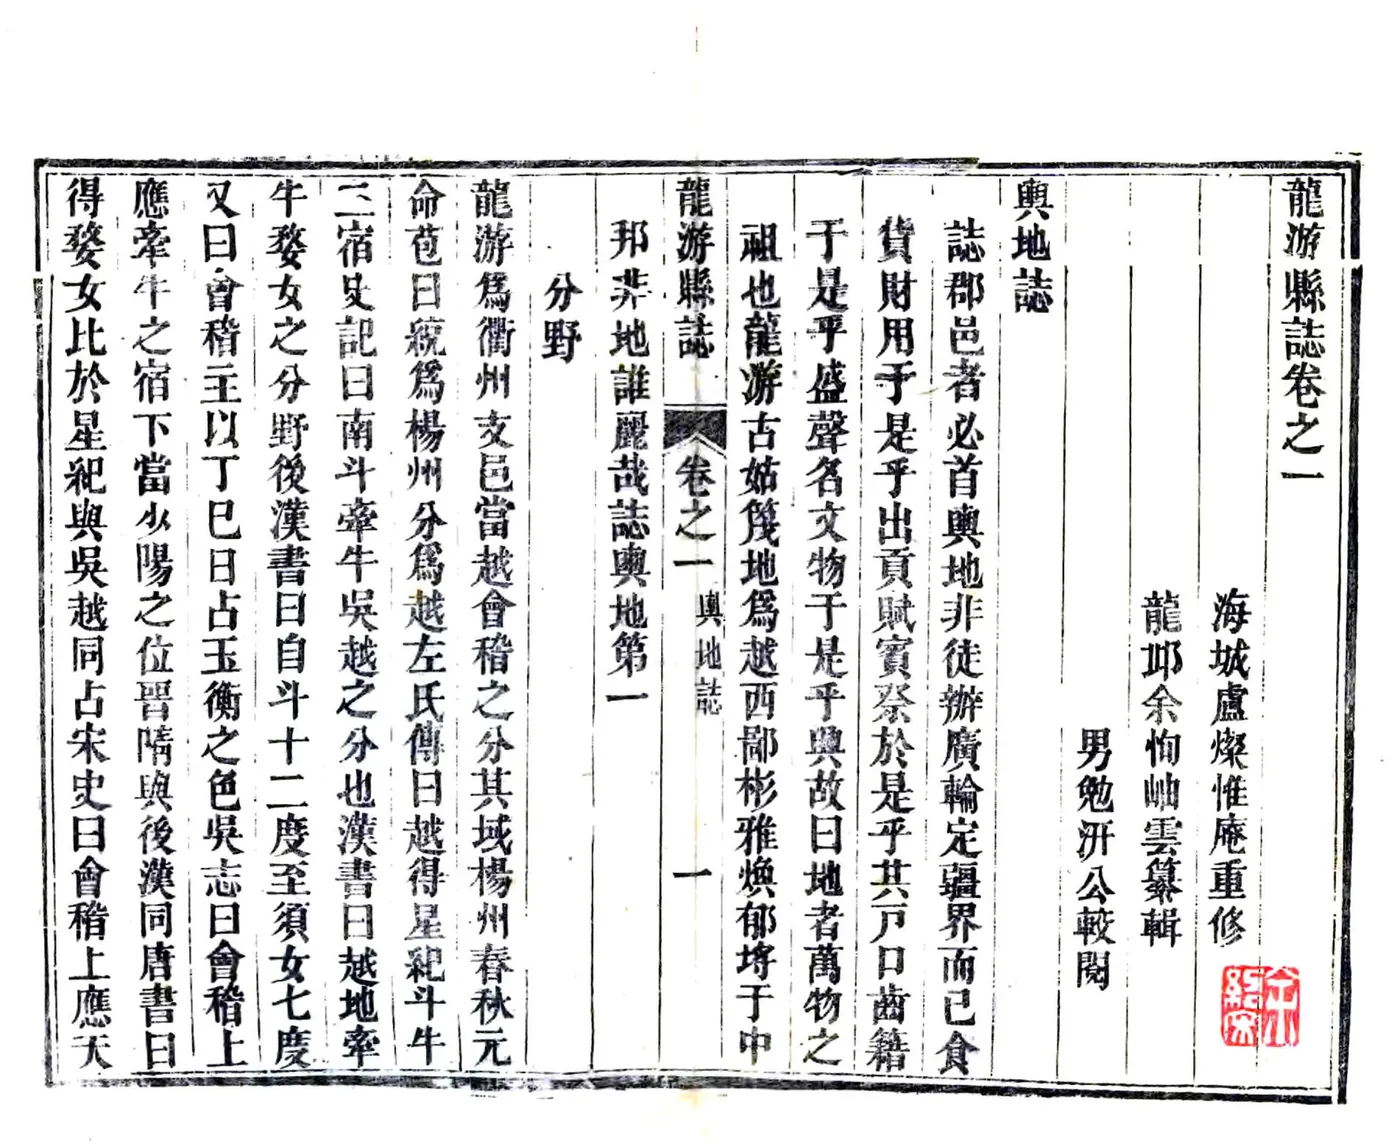 龍游縣誌卷之一
海城盧燦惟庵重修
龍邱余恂岫雲纂輯
男勉汧公較閱
輿地誌
誌郡邑者必首輿地非徒辦廣輪定疆界而已食
貨財用于是乎出貢賦賓祭於是乎共戸口齒籍
于是乎盛聲名文物于是乎興故曰地者萬物之
祖也龍游古姑篾地爲越西鄙彬雅煥郁埓于中
龍游縣誌
卷之一
輿地誌
一
邦非地誰麗哉誌輿地第一
分野
龍游爲衢州支邑當越會稽之分其域楊州春秋元
命苞曰䂀爲楊州分爲越左氏傳曰越得星紀斗牛
二宿史記曰南斗牽牛吳越之分也漢書曰越地牽
牛婺女之分野後漢書曰自斗十二度至須女七度
又曰會稽主以丁巳日占玉衡之色吳志曰會稽上
應牽牛之宿下當少陽之位晋隋與後漢同唐書曰
得婺女比於星紀與吳越同占宋史曰會稽上應天